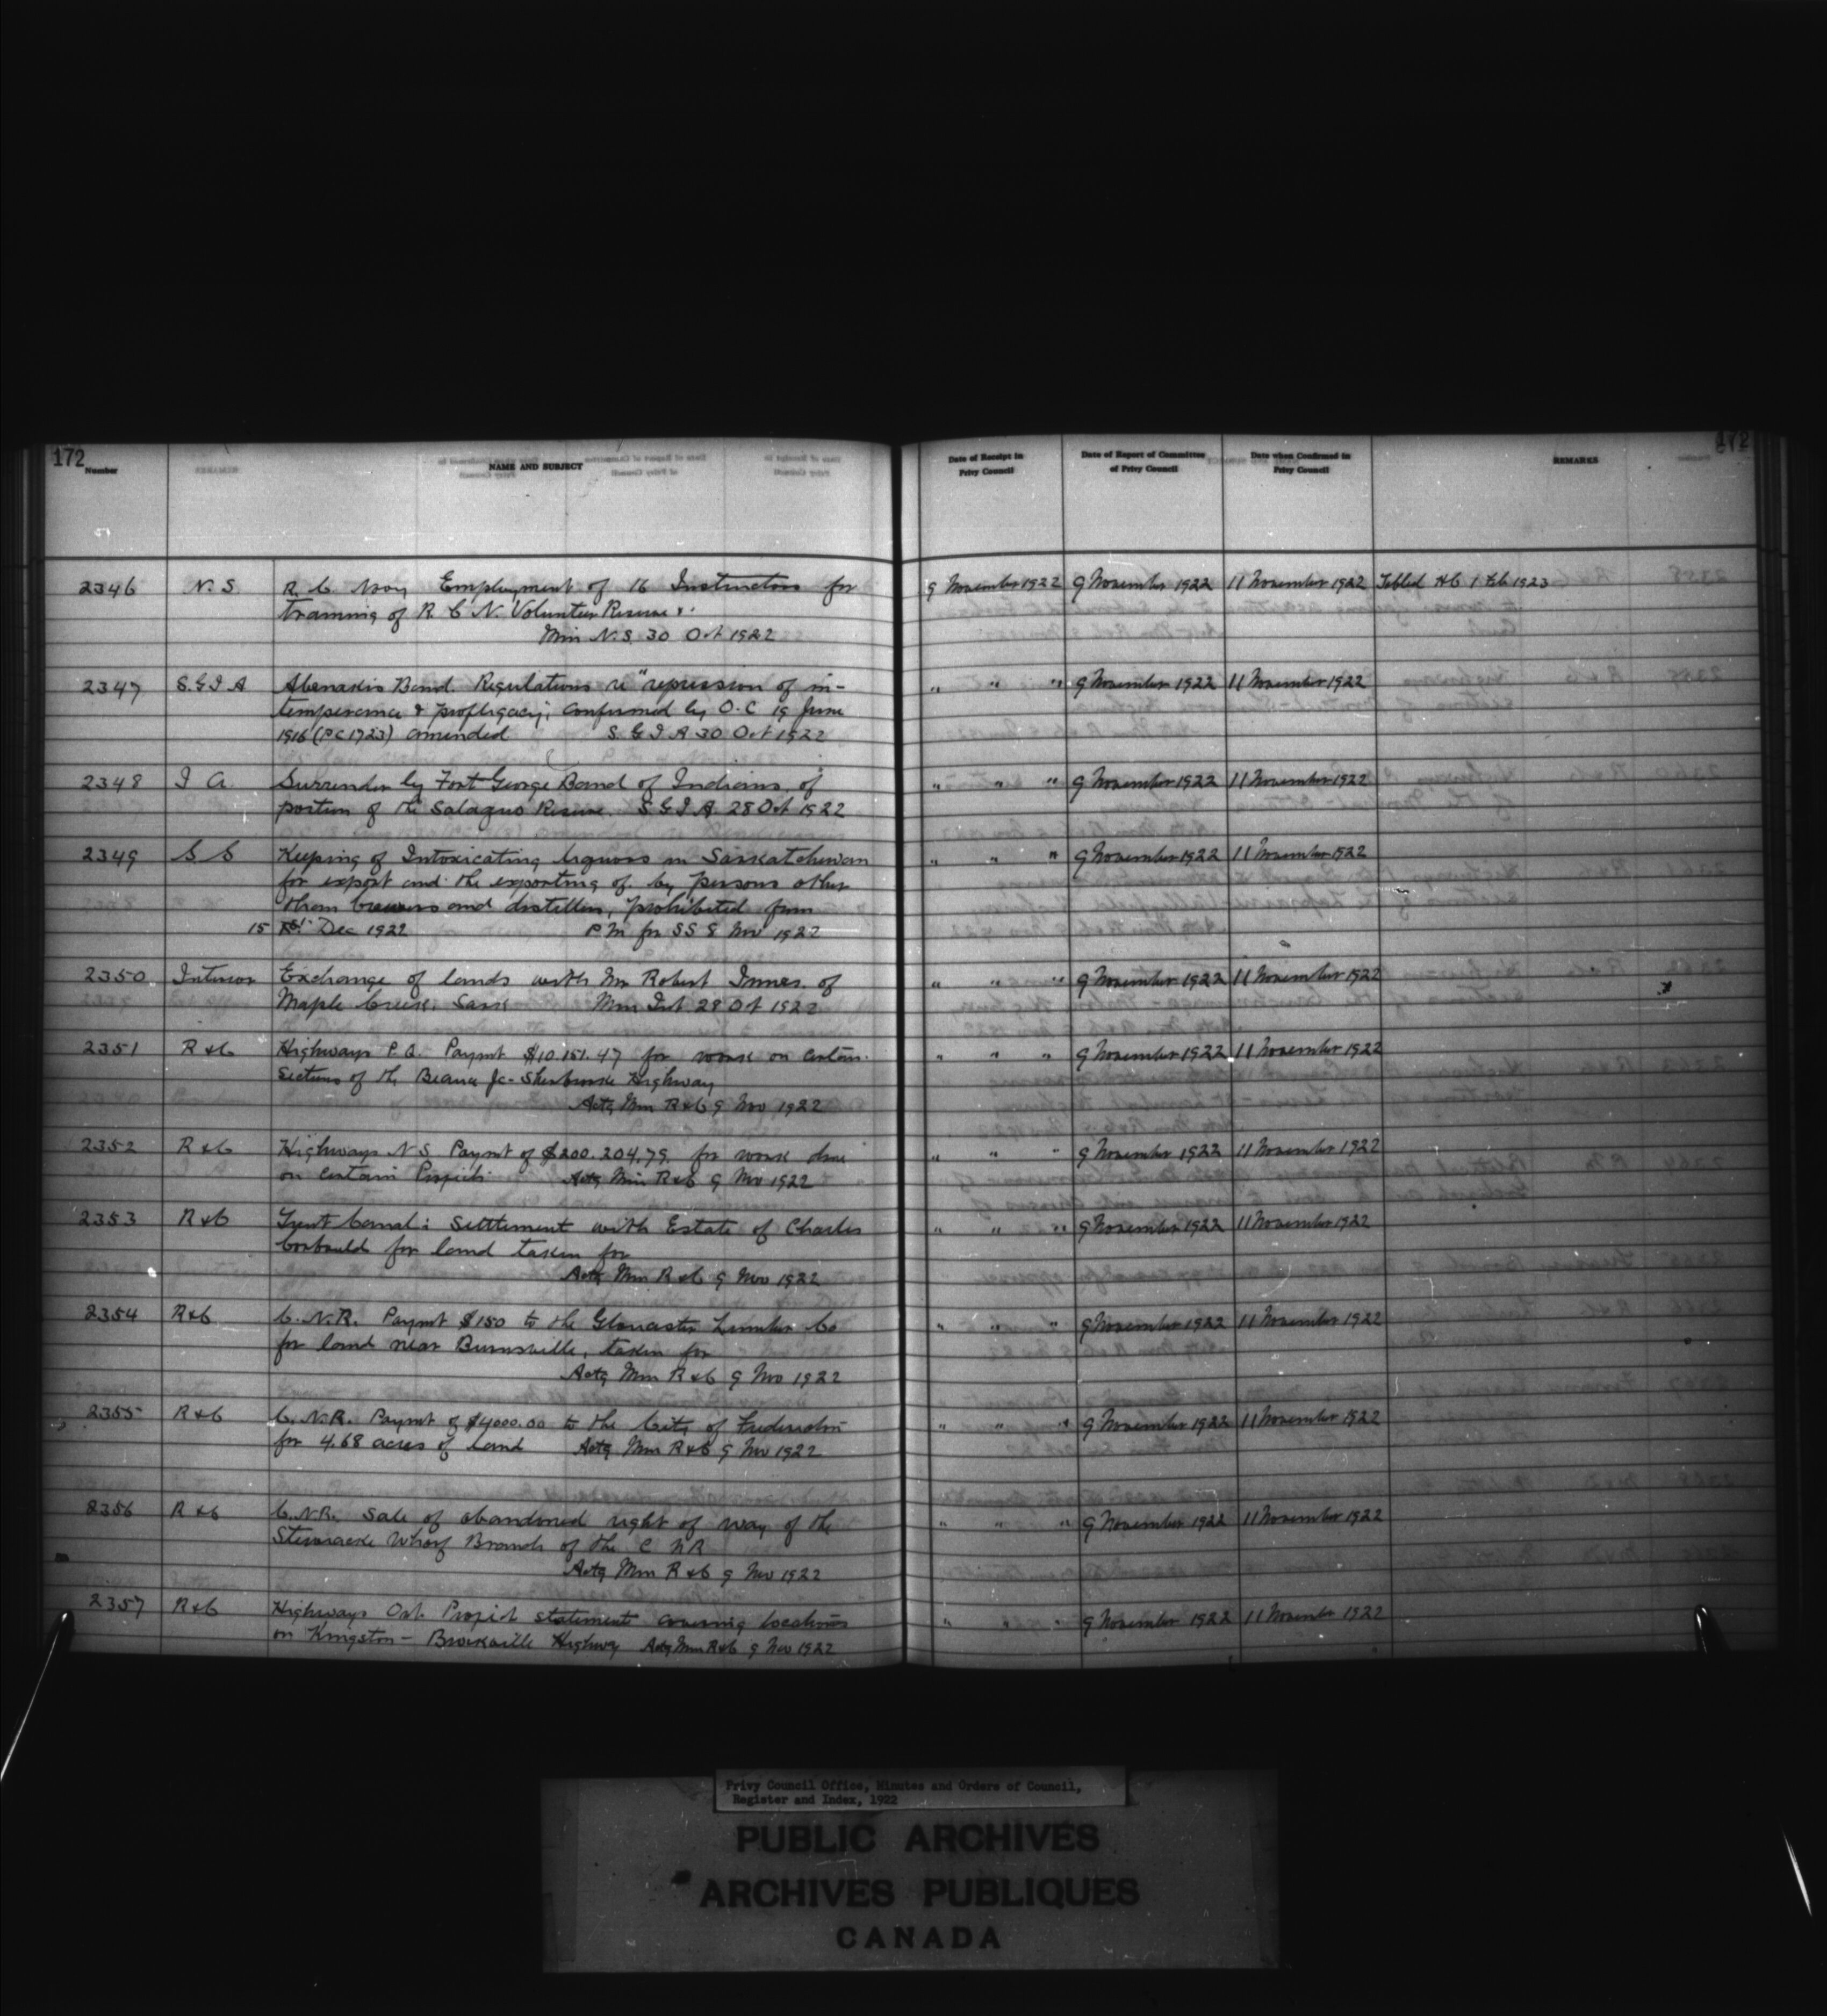 172
172
Number
NAME AND SUBJECT
Date of Receipt in Privy Council
Date of Report of Committee of Privy Council
Date when Confirmed in Privy Council
REMARKS
2346 N. S. R. C. Navy Employment of 16 Instructors for 9 November 1922 9 November 1922 11 November 1922 Tabled HC 1 Feb 1923
training of R. C. N. Volunteer Reserve
Min N. S. 30 Oct 1922
2347 S. G I A Abenakis Band. Regulations re "repression of in- " " " 9 November 1922 11 November 1922
temperance & profligacy; confirmed by O. C 19 June
1916 (PC 1723) amended S. G I A 30 Oct 1922
2348 I A. Surrender by Fort George Band of Indians, of " " " 9 November 1922 11 November 1922
portion of the Reserve. S G I A. 28 Oct 1922
2349 S. S Keeping of Intoxicating liquors in Saskatchewan " " " 9 November 1922 11 November 1922
for export and the exporting of by persons other
than brewers and distillers, prohibited from
15 Dec 1922 P M for SS 8 Nov 1922
2350 Interior Exchange of lands with Mr Robert Innes, of " " " 9 November 1922 11 November 1922
Maple Creek. Sask Min Int 28 Oct 1922
2351 R & C Highways P. Q. Paymt $10.151.47 for work on certain " " " 9 November 1922 11 November 1922
Sections of the Beauce Jc - Sherbrooke Highway
Actg Min R & C 9 Nov 1922
2352 R & C Highways N S. Paymt of $200.204.79, for work done " " " 9 November 1922 11 November 1922
on certain Projects Actg Min R & C 9 Nov 1922
2353 R & C Trent Canal: Settlement with Estate of Charles " " " 9 November 1922 11 November 1922
for land taken for
Actg Min R & C 9 Nov 1922
2354 R & C C. N. R. Paymt $150 to the Gloucester Lumber Co " " " 9 November 1922 11 November 1922
for land near Burnsville, taken for
Actg Min R & C 9 Nov 1922
2355 R & C C. N. R. Paymt of $4000.00 to the City of Fredericton " " " 9 November 1922 11 November 1922
for 4.68 acres of land Actg Min R & C 9 Nov 1922
2356 R & C C. N. R. Sale of abandoned right of way of the " " " 9 November 1922 11 November 1922
Stewiacke Wharf Branch of the C N R
Actg Min R & C 9 Nov 1922
2357 R & C Highways Ont. Project statement covering locations " " " 9 November 1922 11 November 1922
on Kingston - Brockville Highway Actg Min R & C 9 Nov 1922
Privy Council Office, Minutes and Orders of Council,
Register and Index, 1922
PUBLIC ARCHIVES
ARCHIVES PUBLIQUES
CANADA